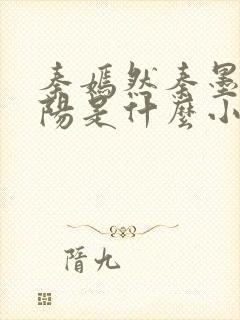 秦嫣然秦墨
陽是什麼小
隋九